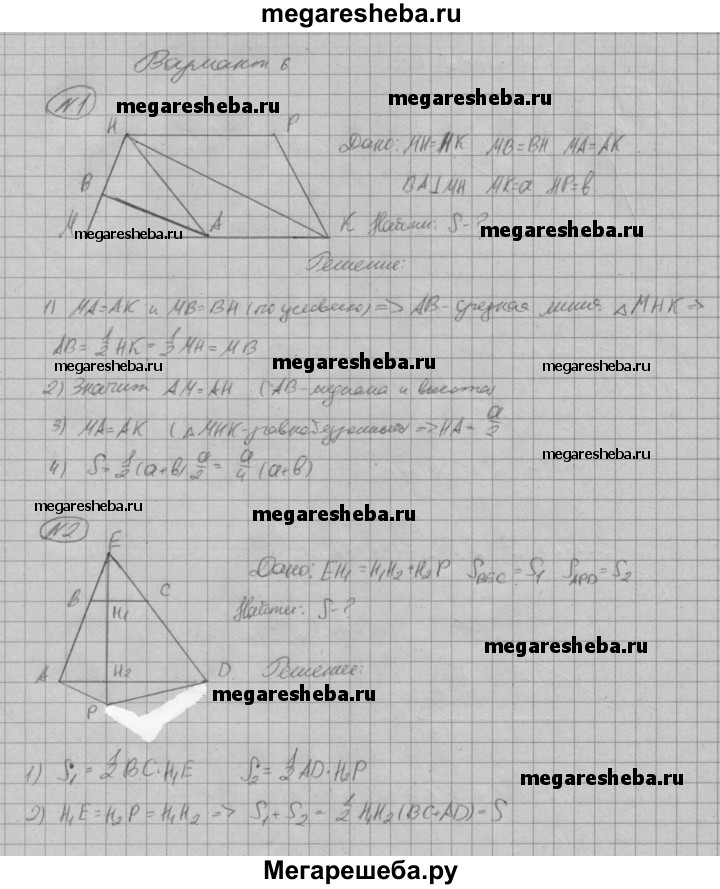 megaresheba.ru
Вариант 6
№1
megaresheba.ru
megaresheba.ru
H P
B
M A K
megaresheba.ru
Дано: MH=HK MB=BH MA=AK
BA⊥MH MK=a HP=b
Найти: S-?
megaresheba.ru
Решение:
1) MA=AK и MB=BH (по условию) => AB-средняя линия △MHK =>
AB = 1/2 HK = 1/2 MH = MB
megaresheba.ru
megaresheba.ru
megaresheba.ru
2) Значит AM=AH (AB-медиана и высота)
3) MA=AK (△MHK-равнобедренный => HA = a/2
4) S = 1/2 (a+b) a/2 = a/4 (a+b)
megaresheba.ru
megaresheba.ru
megaresheba.ru
№2
E
B C
H₁
A H₂ D
P
Дано: EH₁=H₁H₂+H₂P S BEC = S₁ S APD = S₂
Найти: S-?
megaresheba.ru
Решение:
megaresheba.ru
1) S₁ = 1/2 BC·H₁E S₂ = 1/2 AD·H₂P
megaresheba.ru
2) H₁E=H₂P=H₁H₂ => S₁+S₂ = 1/2 H₁H₂(BC+AD)=S
Мегарешеба.ру